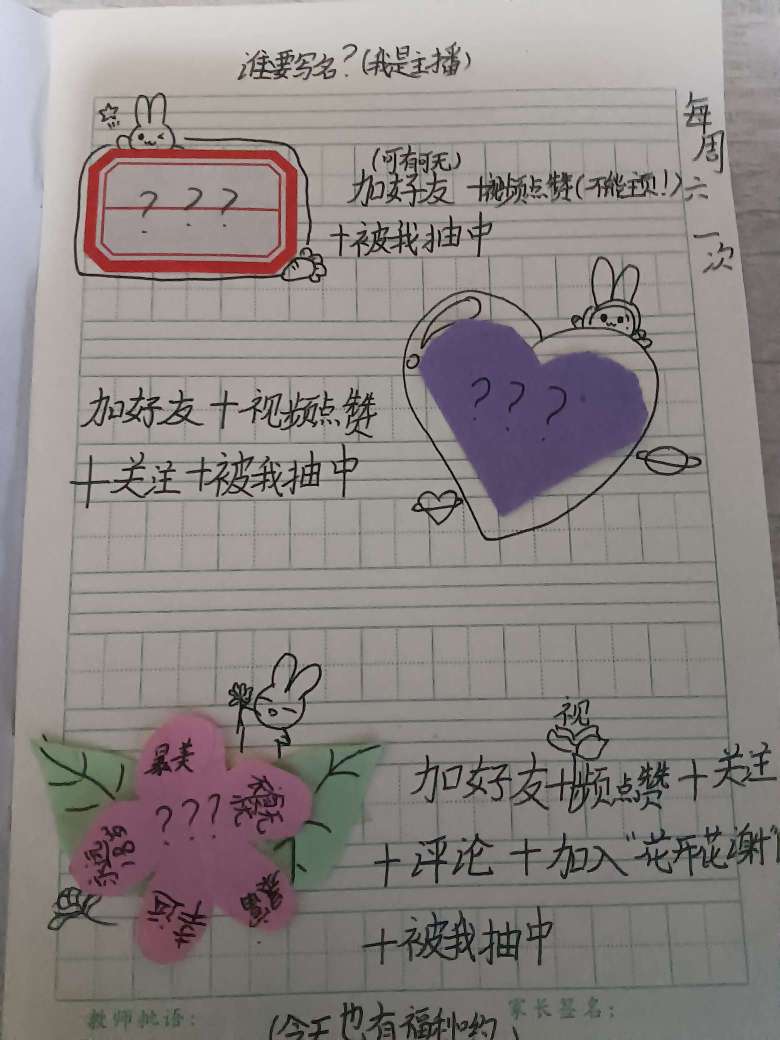 谁要写名?(我是主播)
每周六一次
(可有可无)
加好友+视频点赞(不能主页!)
+被我抽中
???
???
加好友+视频点赞
+关注+被我抽中
暴美
???
学透185
幸运
暴富
视
加好友+频点赞+关注
+评论+加入"花开花谢"
+被我抽中
教师批语:
家长签名:
(今天也有福利哟)